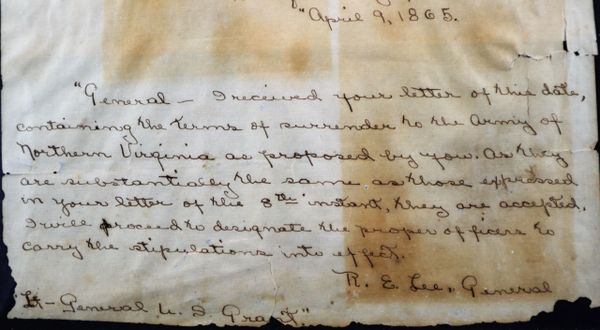 "April 9, 1865.
"General — I received your letter of this date,
containing the terms of surrender to the Army of
Northern Virginia as proposed by you. As they
are substantially the same as those expressed
in your letter of the 8th instant, they are accepted.
I will proceed to designate the proper officers to
carry the stipulations into effect.
R. E. Lee, General
"Lt-General U. S. Grant."